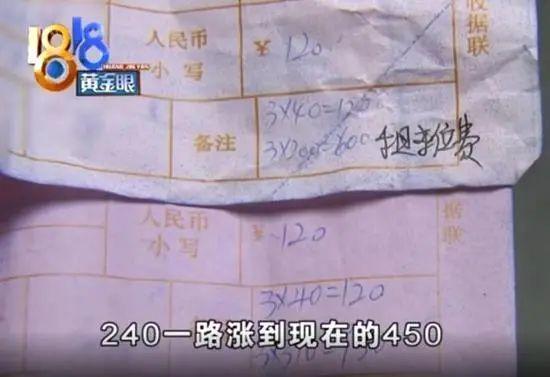 1818
黄金眼
人民币
小写
¥ 120
收据联
备注
3×40=120
3×200=600
租车位费
人民币
小写
¥ 120
据联
3×40=120
240一路涨到现在的450